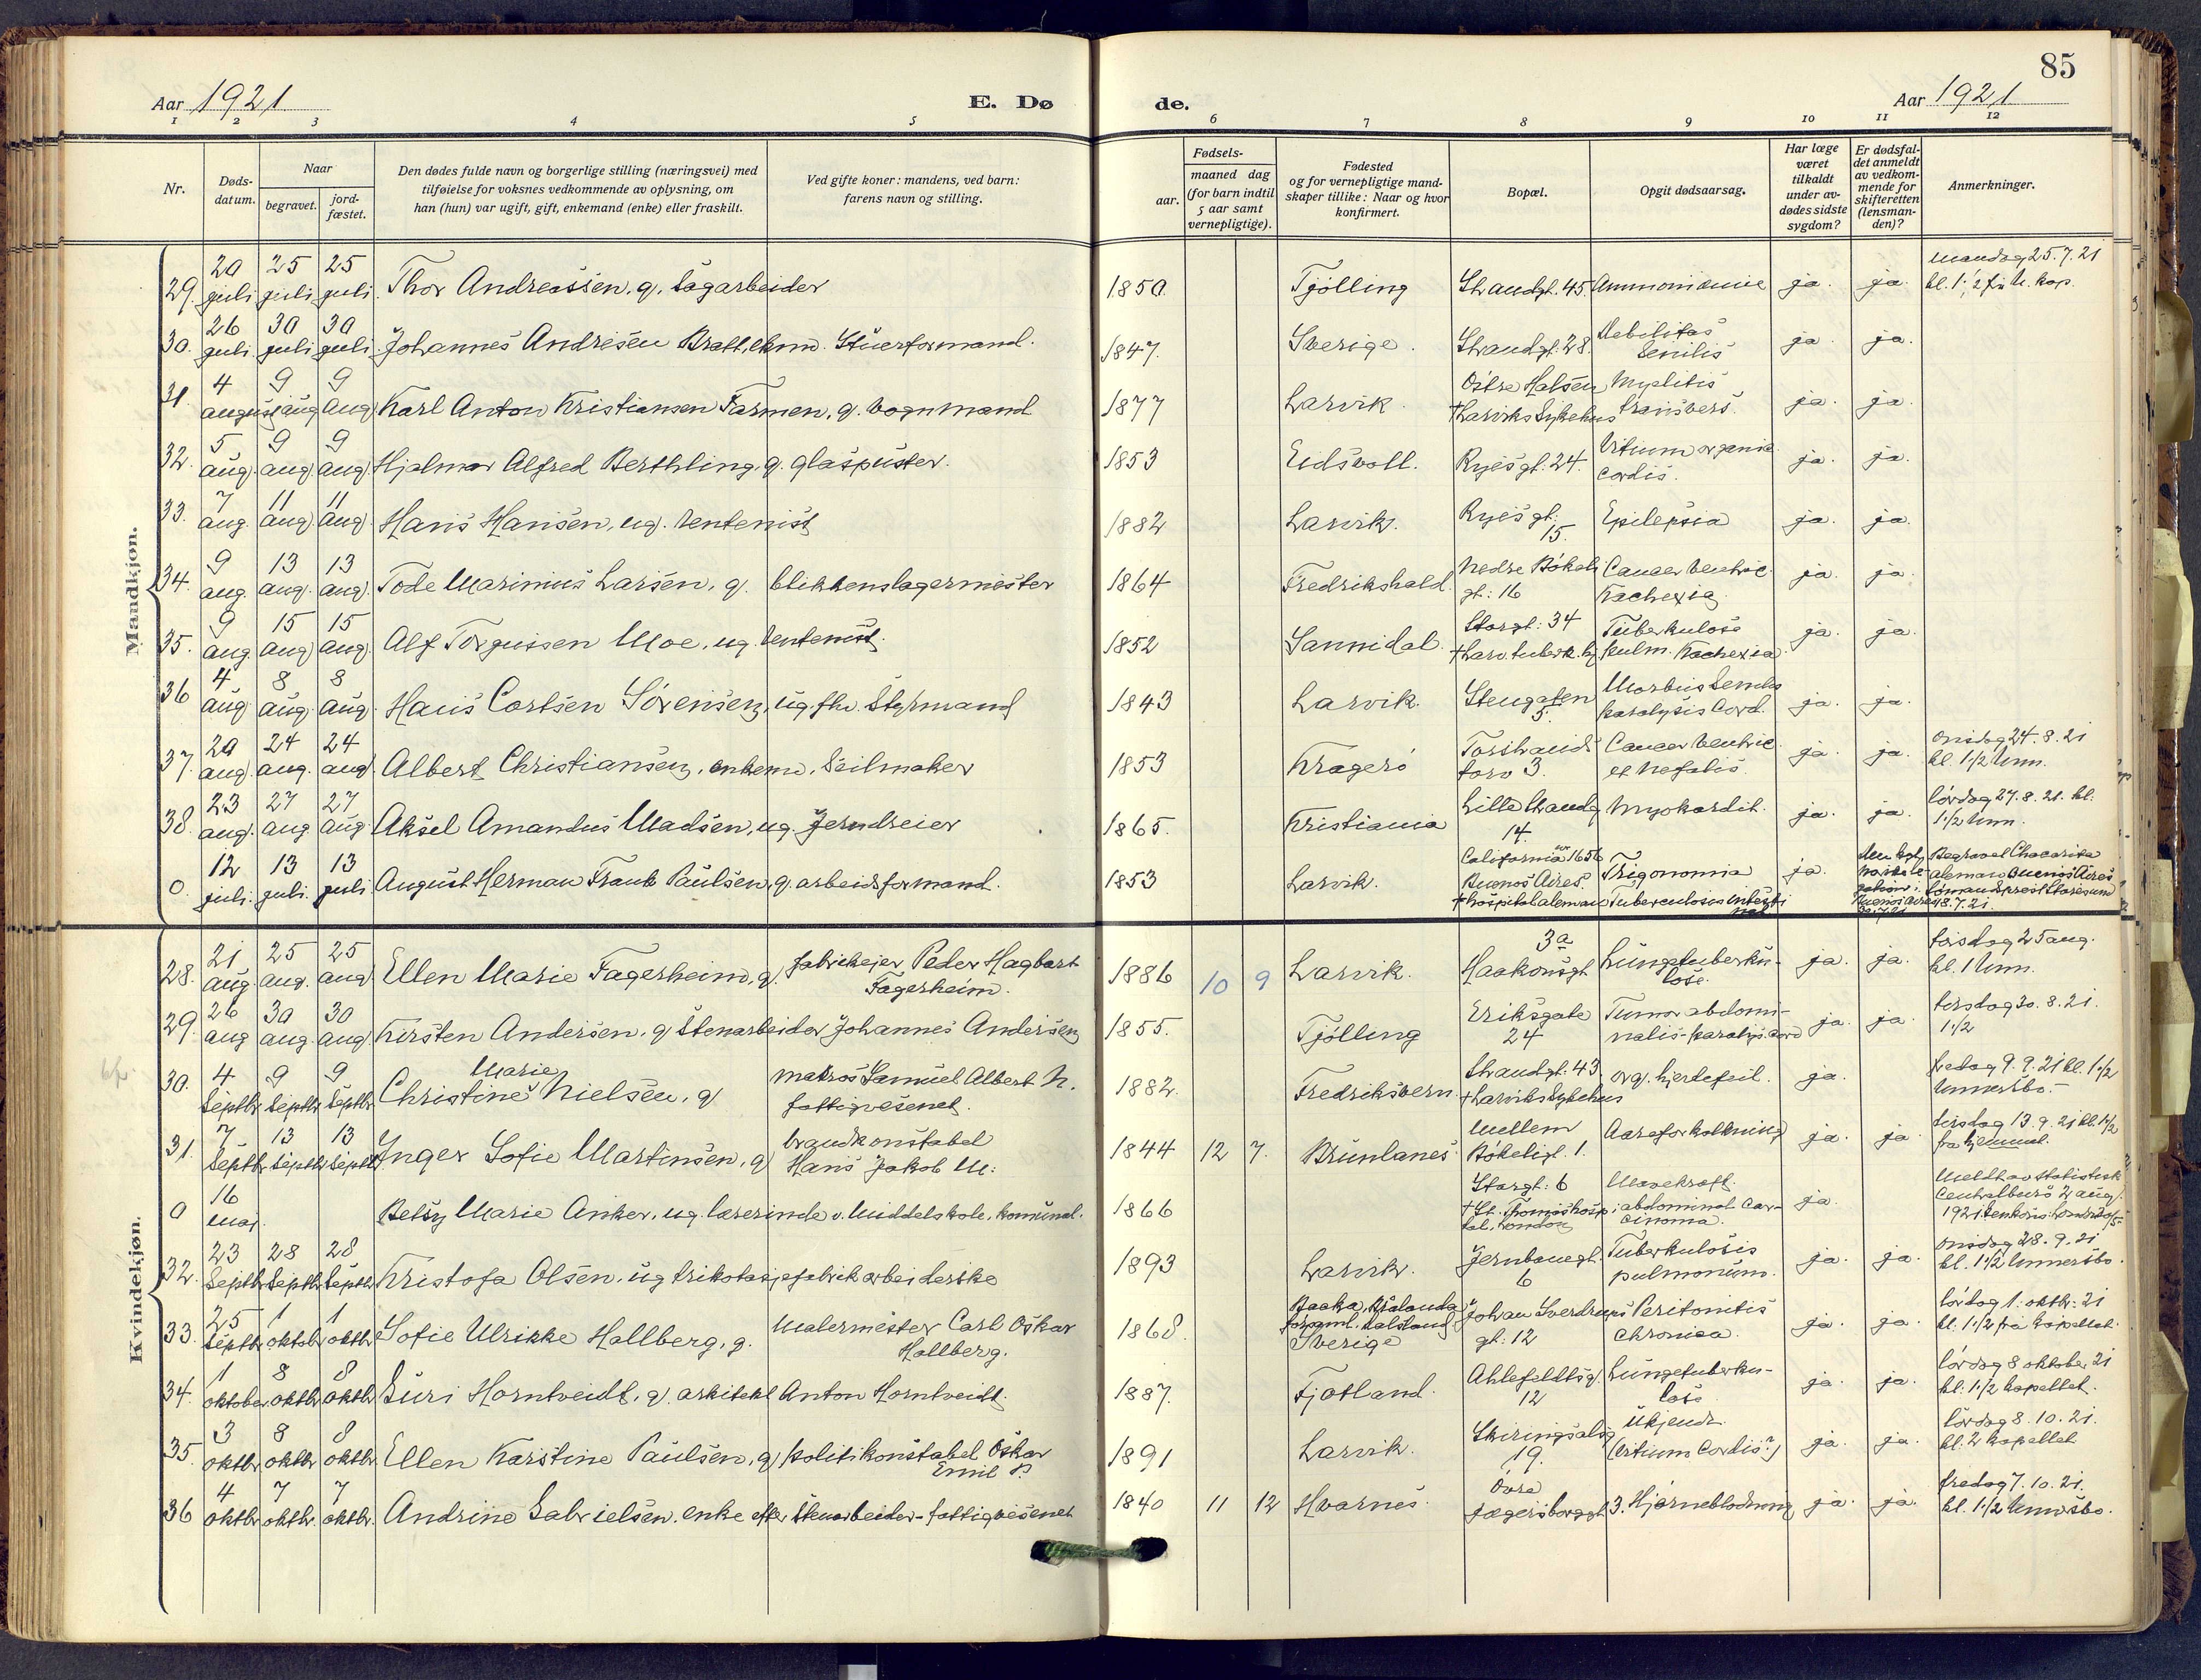 85
Aar 1921
E. Dø
de.
Aar 1921
1 2 3 4 5 6 7 8 9 10 11 12
Nr.
Døds-
datum.
Naar
begravet.
jord-
fæstet.
Den dødes fulde navn og borgerlige stilling (næringsvei) med
tilføielse for voksnes vedkommende av oplysning, om
han (hun) var ugift, gift, enkemand (enke) eller fraskilt.
Ved gifte koner: mandens, ved barn:
farens navn og stilling.
Fødsels-
aar.
maaned dag
(for barn indtil
5 aar samt
vernepligtige).
Fødested
og for vernepligtige mand-
skaper tillike: Naar og hvor
konfirmert.
Bopæl.
Opgit dødsaarsag.
Har læge
været
tilkaldt
under av-
dødes sidste
sygdom?
Er dødsfal-
det anmeldt
av vedkom-
mende for
skifteretten
(lensman-
den)?
Anmerkninger.
Mandkjøn.
20 25 25 mandag 25.7.21
29. juli juli juli Thor Andreassen, g. sagarbeider 1850. Tjölling Strandgt. 45. Ammoniemie ja. ja. kl. 1 1/2
26 30 30 Debilitas
30. juli juli juli Johannes Andresen Bratt, ekmd. Stuerformand. 1847. Sverige. Strandgt. 28. Senilis ja. ja.
4 9 9 Östre Halsen Myelitis
31. august aug aug Karl Anton Kristiansen Farmen, g. vognmand 1877 Larvik. † Larviks Sykehus transvers. ja. ja.
5 9 9 Vitium organic.
32. aug. aug. aug. Hjalmar Alfred Berthling, g. glaspuster. 1853 Eidsvoll. Ryesgt. 24. Cordis. ja. ja.
7 11 11 Ryesgt.
33. aug. aug. aug. Hans Hansen, ug. rentenist 1882 Larvik. 15. Epilepsia ja. ja.
9 13 13 Nedre Bökeli Cancer ventric.
34. aug. aug. aug. Tode Marinius Larsen, g. blikkenslagermester 1864 Fredrikshald gt: 16 Kachexia ja. ja.
9 15 15 Storgt. 34 Tuberkulose
35. aug. aug. aug. Alf Torgussen Moe, ug. rentenist. 1852 Sannidal. † Larv. tuberk. hj. pulm. Kachexia ja. ja.
4 8 8 Morbus Senilis
36 aug aug. aug. Hans Cortsen Sörensen, ug. fhv. Styrmand 1843 Larvik. Stengaten 5. paralysis Cord. ja. ja.
20 24 24 Torstrands Cancer ventric. onsdag 24.8.21
37. aug. aug. aug. Albert Christiansen, enkem. Seilmaker 1853 Kragerö torv 3. ja. ja. kl. 1 1/2
23 27 27 lördag 27.8.21. kl.
38. aug. aug aug. Aksel Amandus Madsen, ug. Jerndreier 1865. Kristiania 14. Myokardit. ja. ja. 1 1/2
12 13 13 California 1656 Begravet Chacarita
0. juli. juli. juli August Herman Frank Paulsen, g. arbeidsformand. 1853 Larvik. Buenos Aires. Trigonomia ja. aleman Buenos Aires
† hospital aleman Tuberculosis intesti
nal 18.7.21.
Kvindekjøn.
21 25 25 fabrikeier Peder Hagbart 3a Lungetuberku- torsdag 25 aug.
28. aug. aug. aug. Ellen Marie Fagerheim, g. Fagerheim. 1886 10 9 Larvik. Haakonsgt lose. ja. ja. kl. 1
26 30 30 Eriksgate Tumor abdomi- tirsdag 30.8.21.
29. aug aug. aug. Kirsten Andersen, g. Stenarbeider Johannes Andersen 1855. Tjölling 24 nalis-paralys. cord ja. ja. 1 1/2
4 9 9 Marie matros Samuel Albert N. Strandgt. 43 fredag 9.9.21 kl. 1 1/2
30. Septbr Septbr Septbr Christine Nielsen, g fattigvesenet. 1882. Fredriksvern. † Larviks Sykehus org. hjertefeil. ja.
7 13 13 brandkonstabel Mellem tirsdag 13.9.21 kl. 1 1/2
31. Septbr Septbr Septbr Inger Sofie Martinsen, g Hans Jakob M. 1844 12 7. Brunlanes Bökeligt. 1. Aareforkalkning ja. ja. fra hjemmet.
16 Storgt: 6 Mavekraft.
0 mai. Betsy Marie Anker, ug. lærerinde v. Middelskole, komunal. 1866 † St. Thomas hospi- tal. London abdominal Car- cinoma. ja.
23 28 28 Jernbanegt. Tuberkulosis onsdag 28.9.21
32. Septbr Septbr Septbr Kristofa Olsen, ug trikotasjefabrikarbeiderske 1893 Larvik. 6 pulmonum. ja. ja. kl. 1 1/2
25 1 1 Malermester Carl Oskar Johan Sverdrups Peritonitis lördag 1. oktbr. 21
33. Septbr oktobr. oktbr Sofie Ulrikke Hallberg, g. Hallberg. 1868. Sverige gt: 12 chronica. ja. ja. kl. 1 1/2 fra kapellet.
1 8 8 Ahlefeldtsg. Lungetuberku- lördag 8 oktober 21
34. oktober oktbr oktbr Guri Horntveidt, g. arkitekt Anton Horntveidt. 1887. Fjotland. 12 lose ja. ja. kl. 1 1/2 kapellet.
3 8 8 Skiringsalsg. Ukjendt. lördag 8.10.21.
35. oktbr oktbr. oktbr. Ellen Karstine Paulsen, g politikonstabel Oskar Emil P. 1891 Larvik. 19. (Vitium Cordis?) ja. ja. kl. 2 kapellet
4 7 7 Övre fredag 7.10.21.
36 oktbr oktbr. oktbr. Andrine Gabrielsen, enke efter Stenarbeider-fattigvesenet 1840 11 12 Hvarnes. Jægersborggt. 3. Hjerneblödning ja. ja. kl. 1 1/2